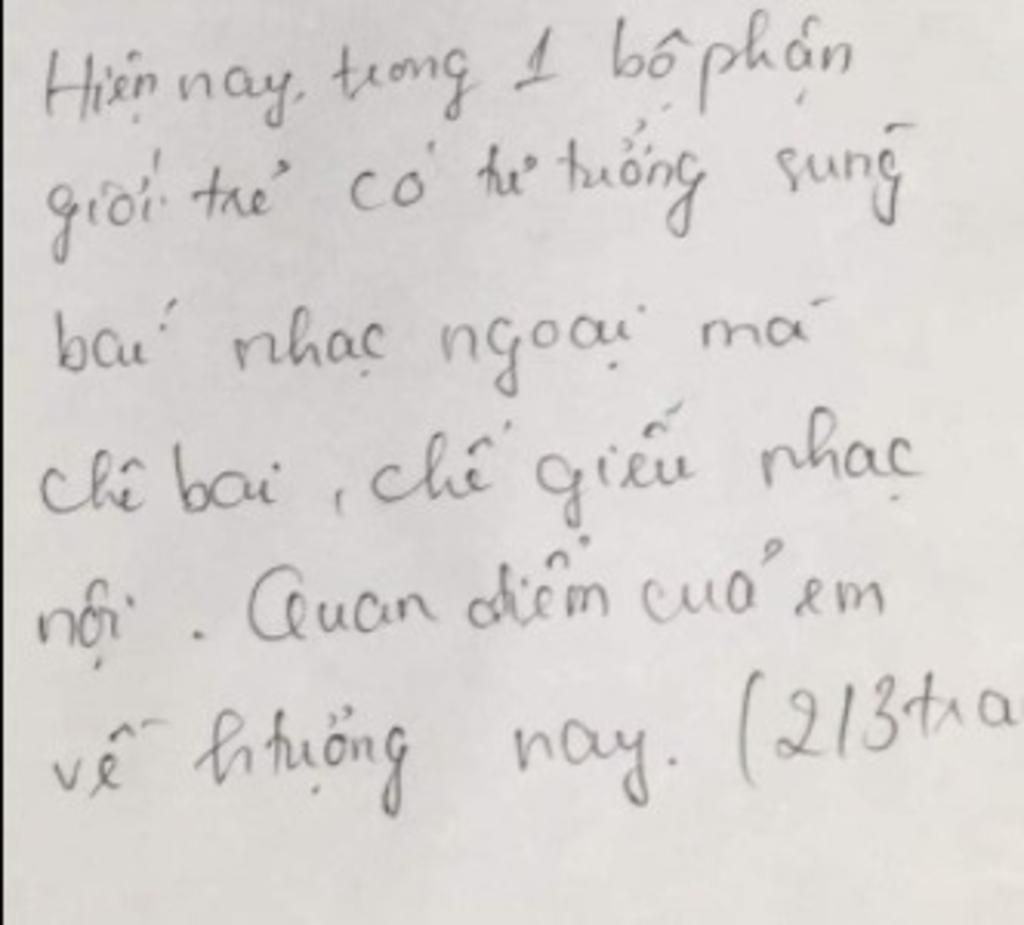 Hiện nay, trong 1 bộ phận
giới trẻ có tư tưởng sùng
bái nhạc ngoại mà
chê bai, chế giễu nhạc
nội. Quan điểm của em
về htượng này. (2/3 tra